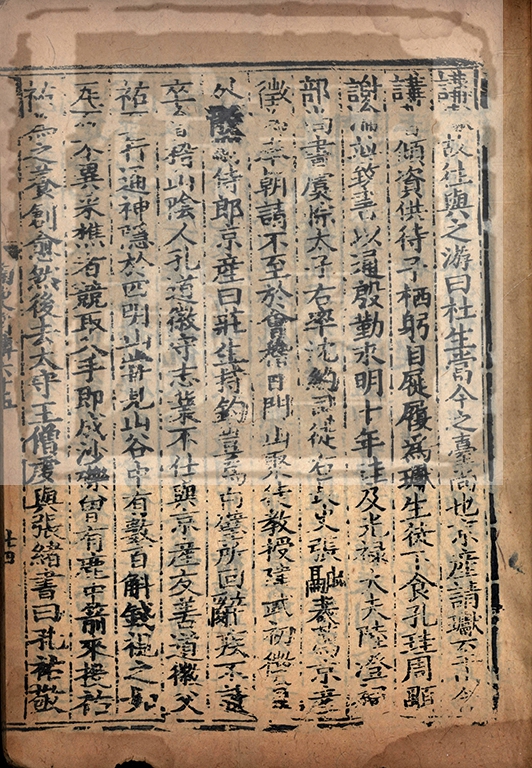 講故往與之游曰杜生當今之臺尚也京產請瓛至山舍
講書傾資供待子栖躬自屣履為瓛生徒下食孔珪周顒
謝瀹並致書以通殷勤永明十年珪及光祿大夫陸澄祠
部尚書虞悰太子右率沈約司徒右長史張融表薦京產
徵為奉朝請不至於會稽日門山聚徒教授建武初徵員
外散騎侍郎京產曰莊生持釣豈為白璧所回辭疾不就
卒會稽山陰人孔道徽守志業不仕與京產友善道徽父
祐至行通神隱於四明山嘗見山谷中有數百斛錢視之如
瓦石不異采樵者競取入手即成沙礫曾有鹿中箭來投祐
祐為之養創愈然後去太守王僧虔與張緒書曰孔祐敬
十四